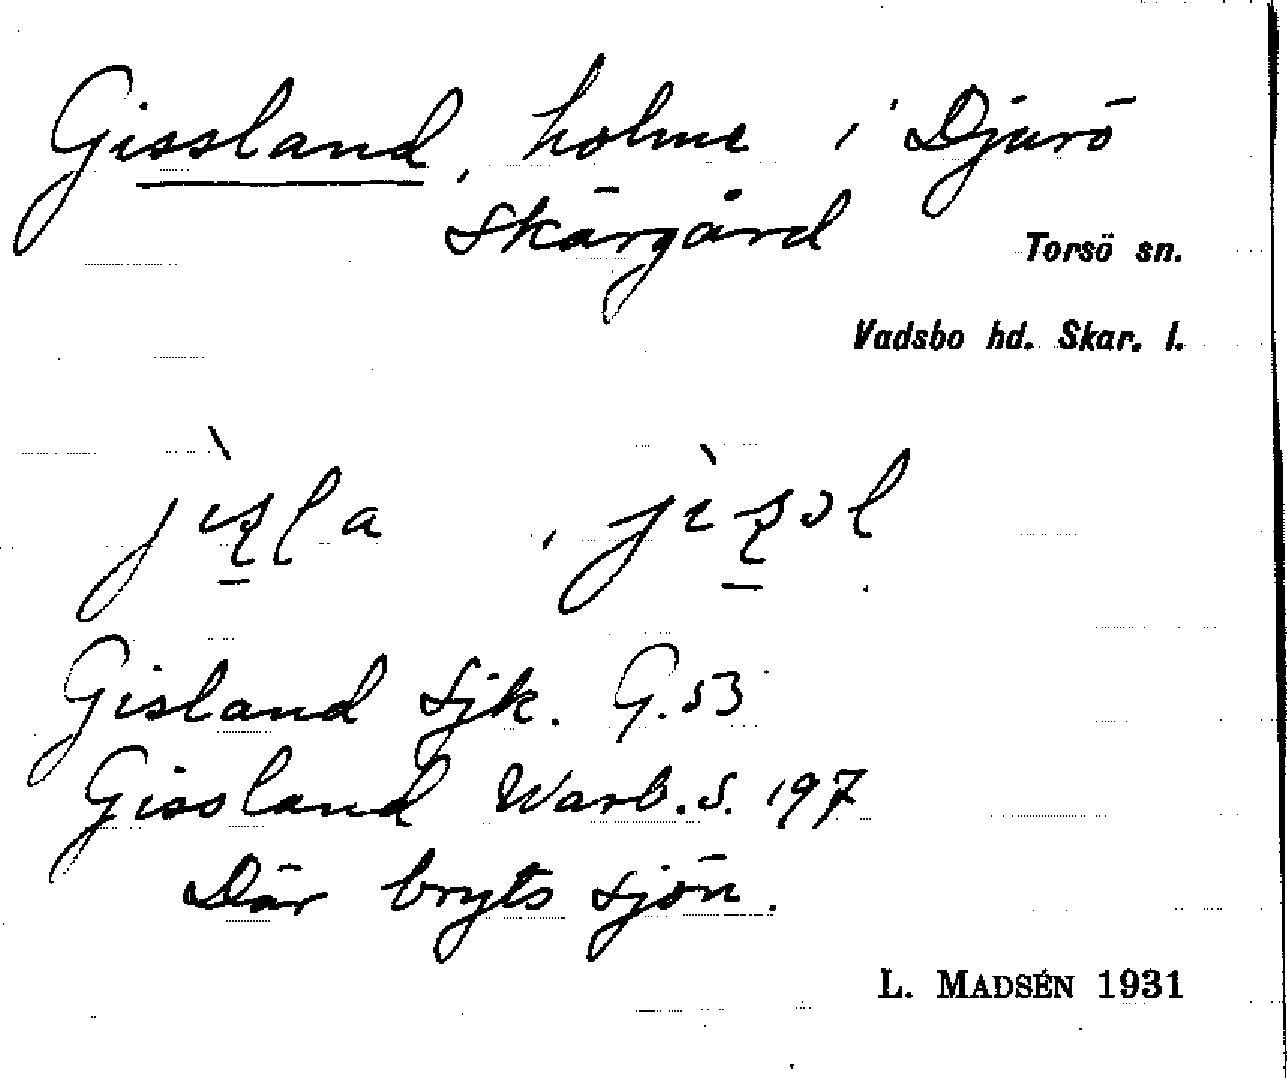 Gissland, holme i Djurö
Skärgård
Torsö sn.
Vadsbo hd. Skar. l.
Gisland Sjk. G. 53
Gissland Warb. S. 197
Där bryts sjön.
L. MADSÉN 1931